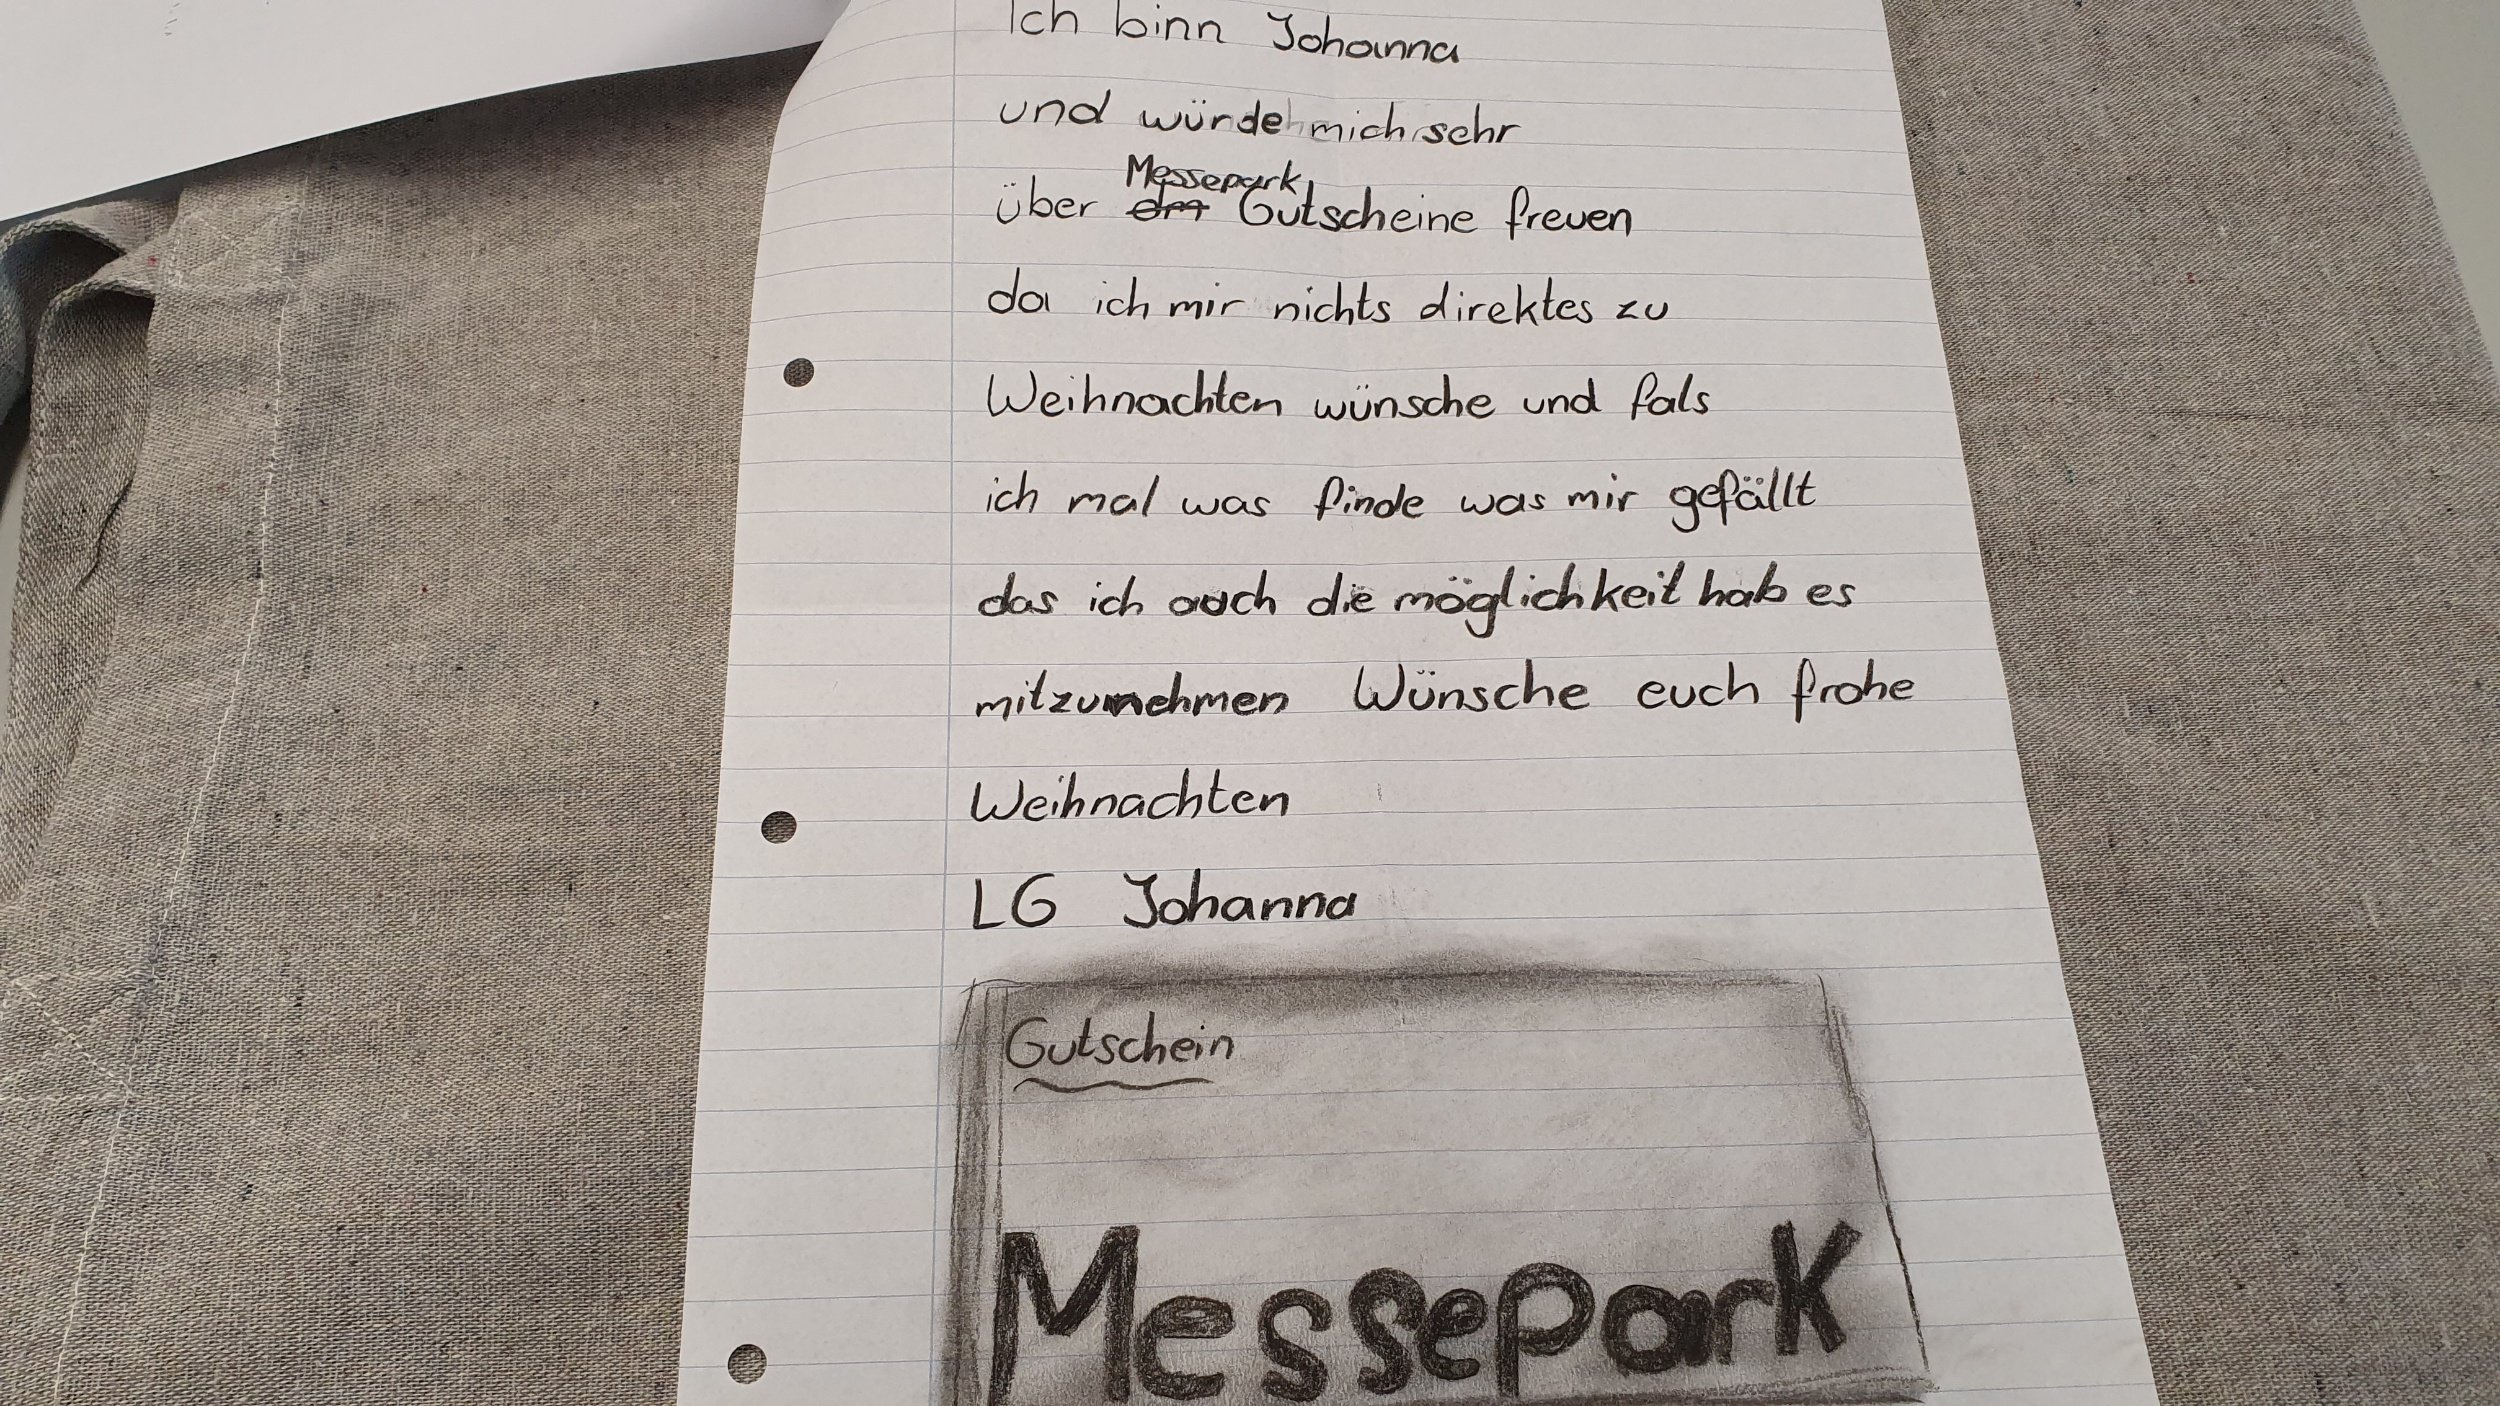 Ich binn Johanna
und würde mich sehr
über dm Messepark Gutscheine freuen
da ich mir nichts direktes zu
Weihnachten wünsche und fals
ich mal was finde was mir gefällt
das ich auch die möglichkeit hab es
mitzunehmen Wünsche euch frohe
Weihnachten
LG Johanna
Gutschein
Messepark